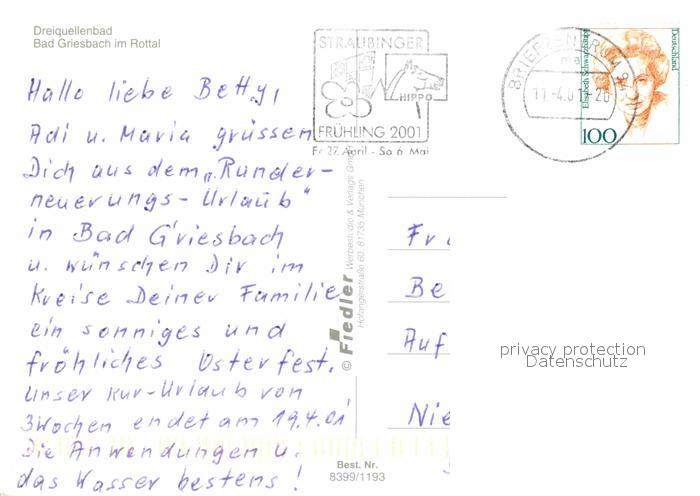 Dreiquellenbad
Bad Griesbach im Rottal
Hallo liebe Betty,
Adi u. Maria grüssen
Dich aus dem „Runder-
neuerungs-Urlaub"
in Bad Griesbach
u. wünschen Dir im
Kreise Deiner Familie
ein sonniges und
fröhliches Osterfest.
Unser Kur-Urlaub von
3 Wochen endet am 19.4.01
Die Anwendungen u.
das Wasser bestens!
STRAUBINGER
HIPPO
FRÜHLING 2001
Fr 27. April - So 6. Mai
BRIEFZENTRUM 94
ma
11.-4.01-20
Elisabeth Schwarzhaupt
Deutschland
100
© Fiedler Werbestudio & Verlags GmbH
Hofangerstraße 60, 81735 München
Fr
Be
Auf
Nie
privacy protection
Datenschutz
Best. Nr.
8399/1193